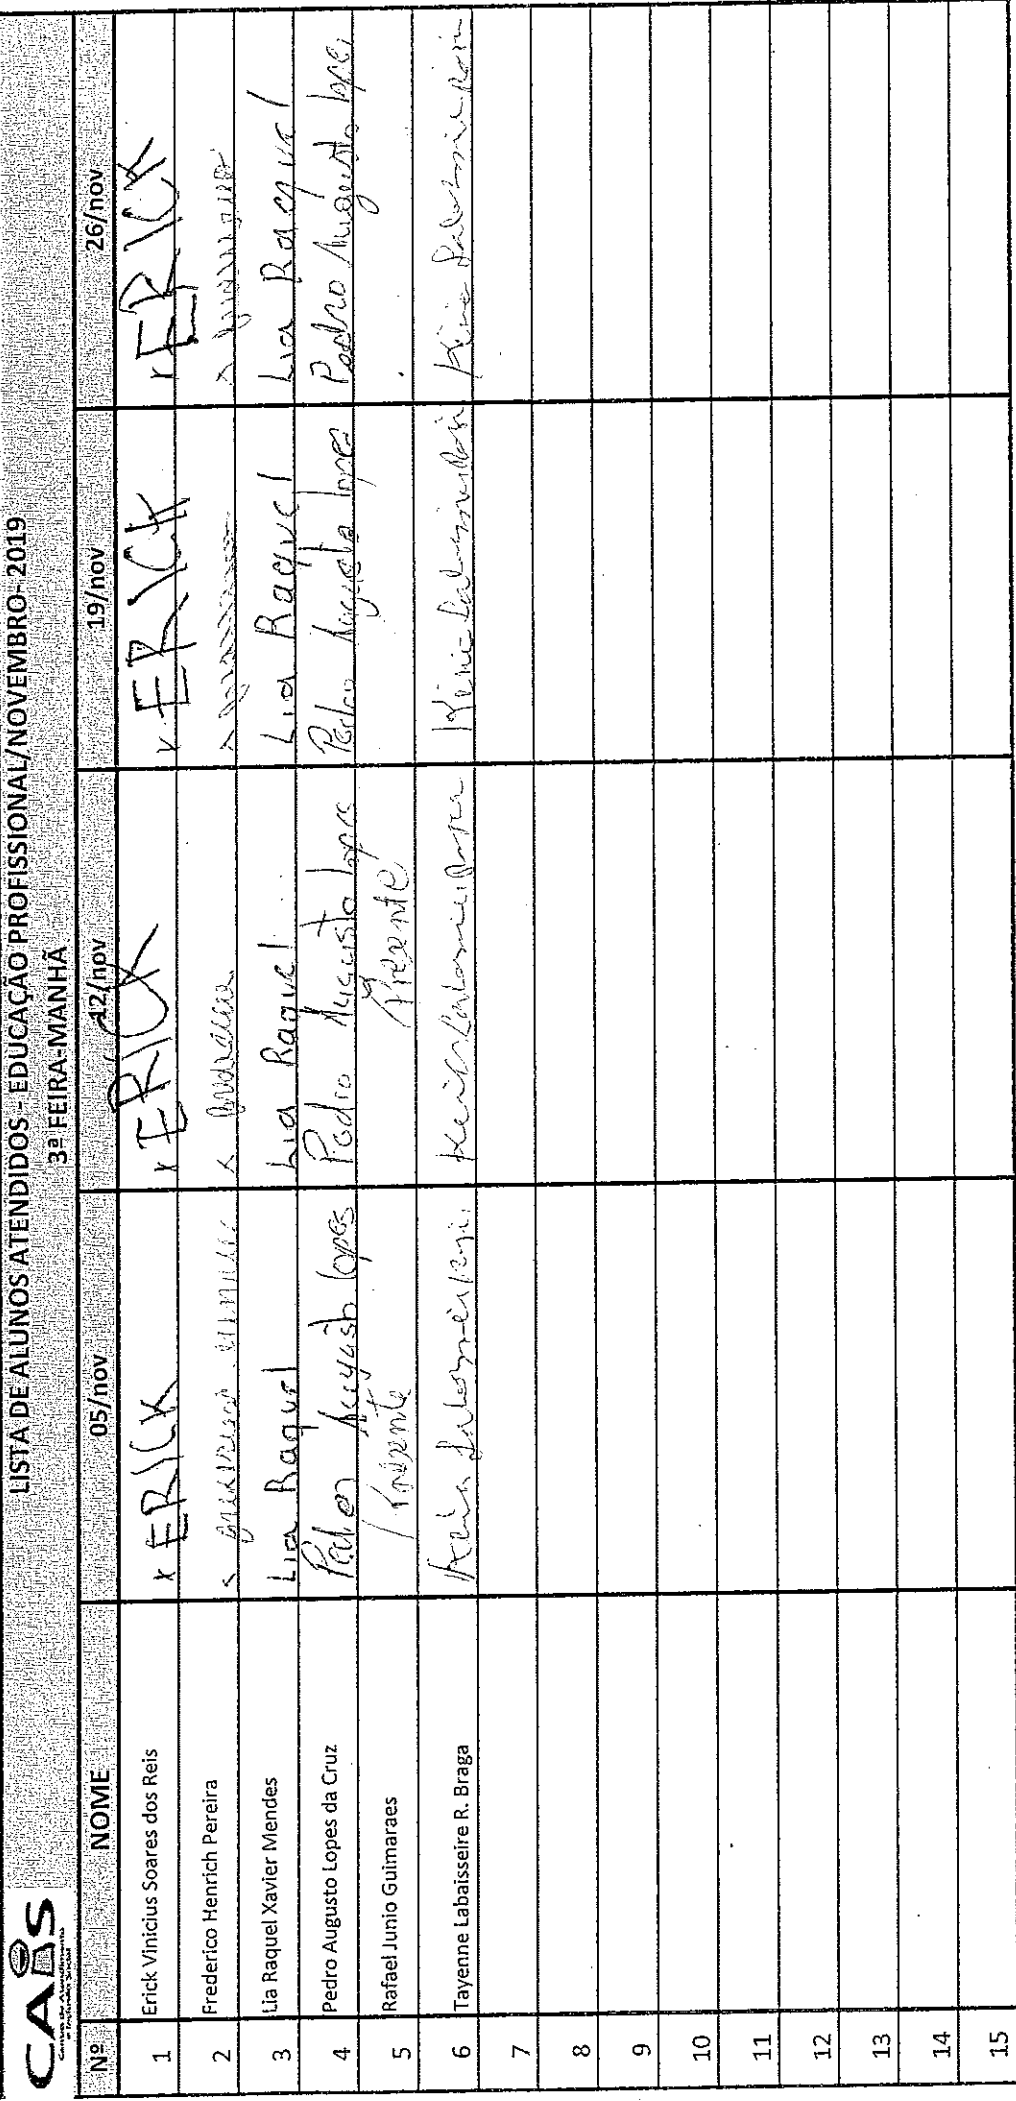 CAIS
Centro de Atendimento
e Inclusão Social
LISTA DE ALUNOS ATENDIDOS - EDUCAÇÃO PROFISSIONAL/NOVEMBRO- 2019
3ª FEIRA-MANHÃ
Nº NOME 05/nov 12/nov 19/nov 26/nov
1 Erick Vinicius Soares dos Reis x ERICK x ERICK x ERICK x ERICK
2 Frederico Henrich Pereira x x x x
3 Lia Raquel Xavier Mendes Lia Raquel Lia Raquel Lia Raquel Lia Raquel
4 Pedro Augusto Lopes da Cruz Pedro Augusto Lopes Pedro Augusto Lopes Pedro Augusto Lopes Pedro Augusto Lopes
5 Rafael Junio Guimaraes Presente Presente
6 Tayenne Labaisseire R. Braga
7
8
9
10
11
12
13
14
15